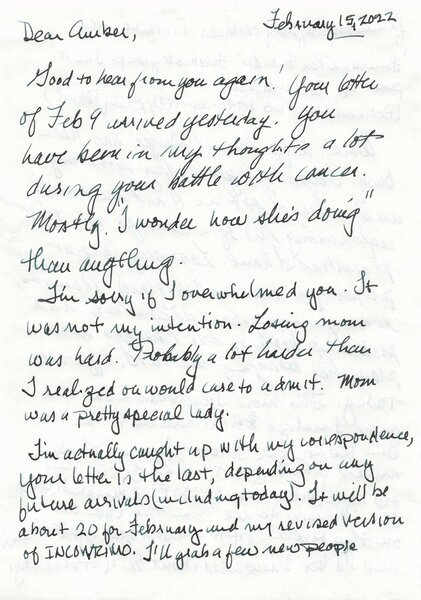 February 15, 2022
Dear Amber,
Good to hear from you again. Your letter
of Feb 9 arrived yesterday. You
have been in my thoughts a lot
during your battle with cancer.
Mostly, "I wonder how she's doing"
than anything.
I'm sorry if I overwhelmed you. It
was not my intention. Losing mom
was hard. Probably a lot harder than
I realized or would care to admit. Mom
was a pretty special lady.
I'm actually caught up with my correspondence,
your letter is the last, depending on any
future arrivals (including today). It will be
about 20 for February and my revised version
of INCOWRIMO. I'll grab a few new people